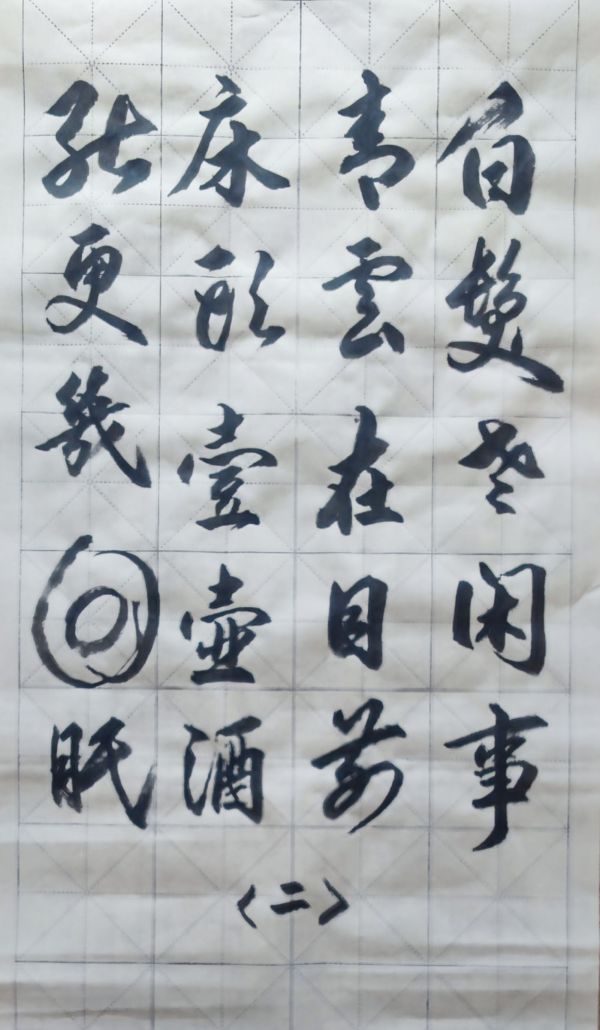 白髮老闲事
青雲在目前
床頭壹壺酒
能更幾回眠
〈二〉